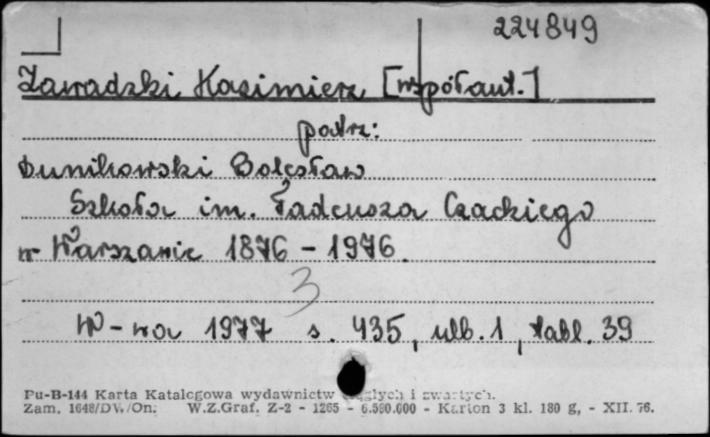 224849
Zawadzki Kazimierz [współaut.]
patrz:
Dunikowski Bolesław
Szkoła im. Tadeusza Czackiego
w Warszawie 1876 - 1976.
3
W-wa 1977 s. 435, nlb. 1, tabl. 39
Pu-B-144 Karta Katalogowa wydawnictw ciągłych i zwartych.
Zam. 1648/DW/On. W.Z.Graf. Z-2 - 1265 - 6.590.000 - Karton 3 kl. 180 g, - XII. 76.